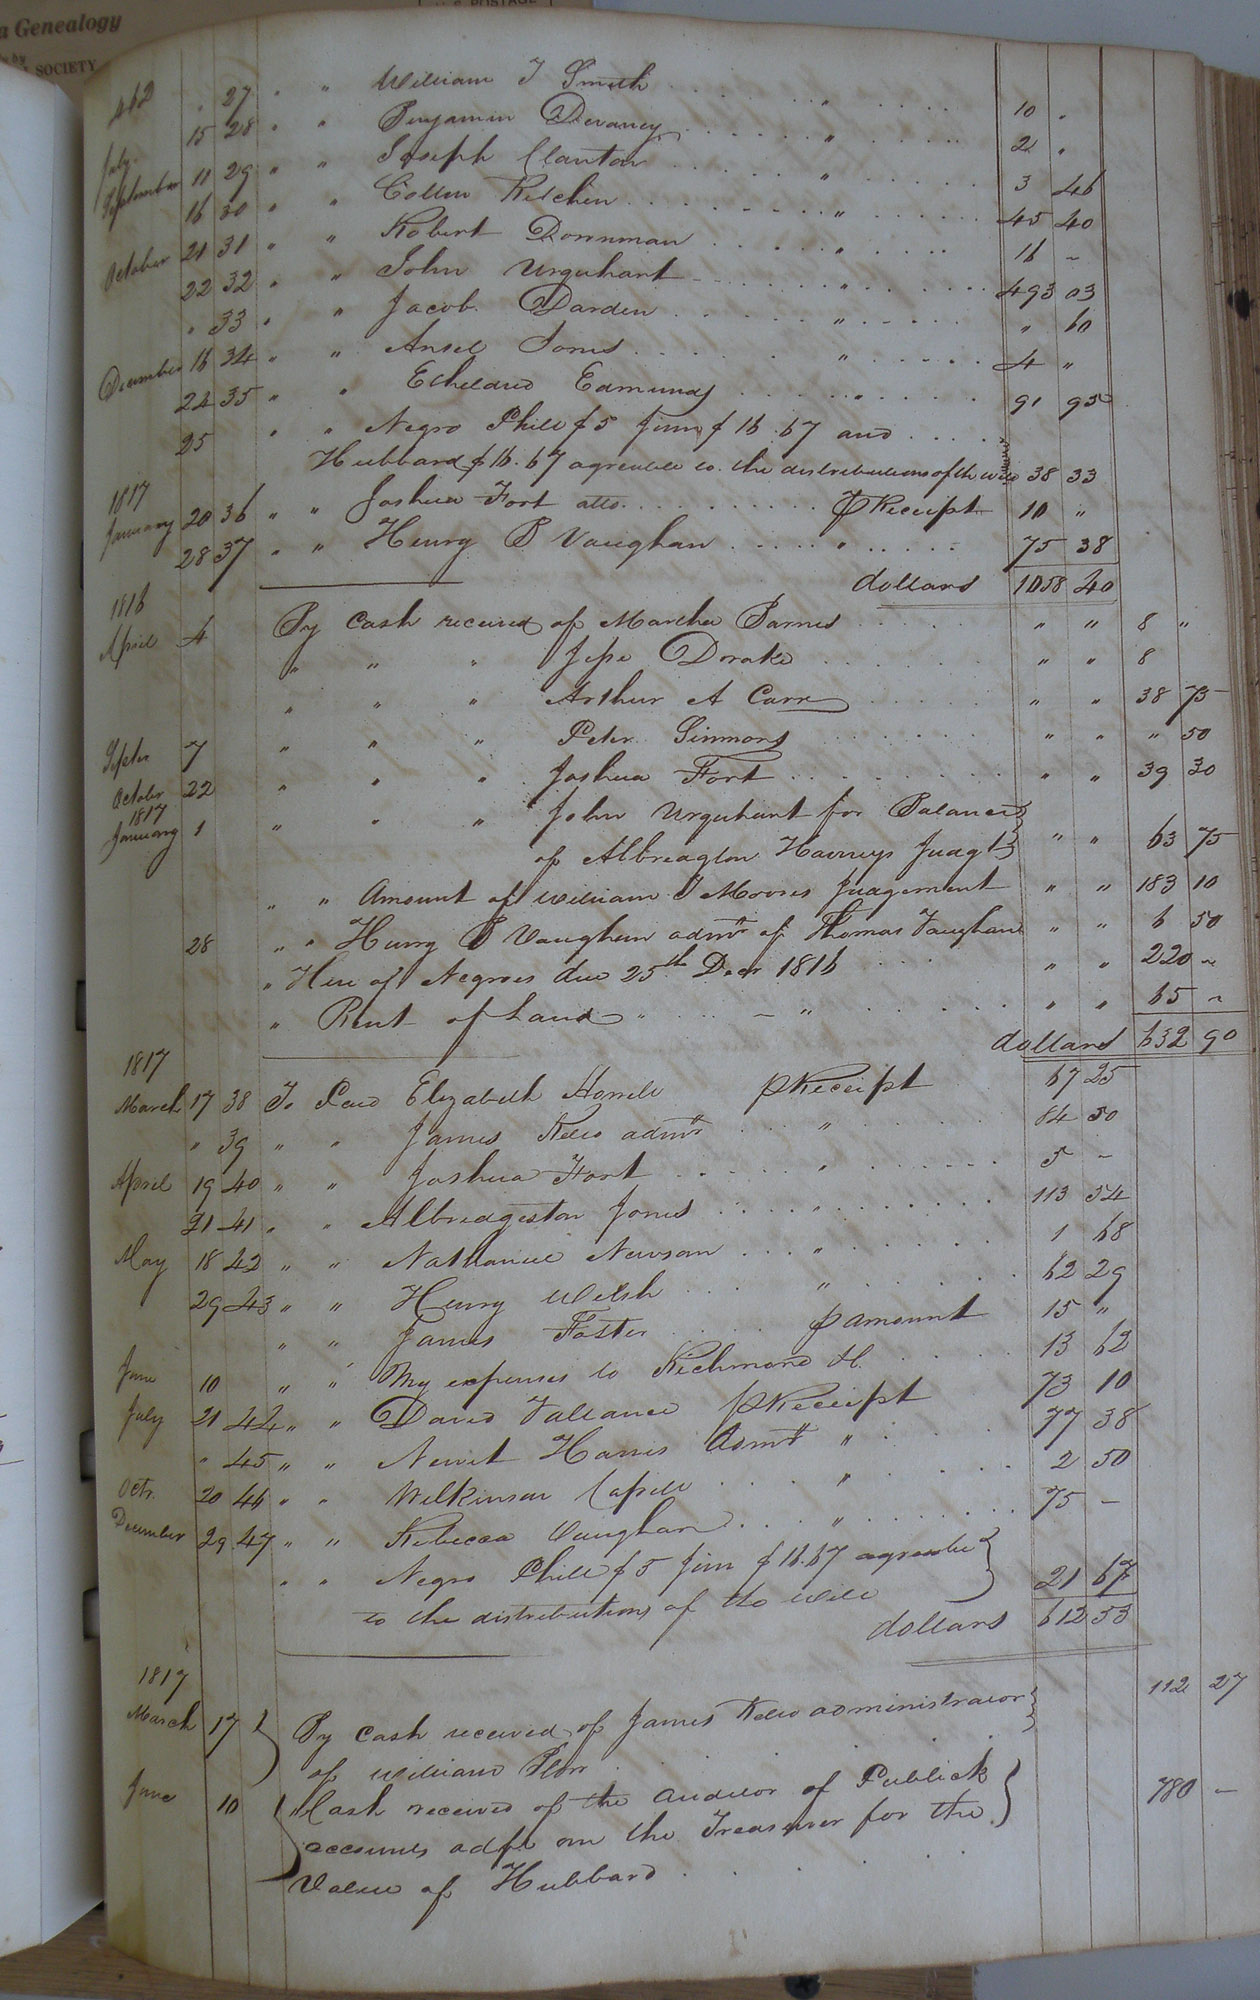 a Genealogy
U.S. POSTAGE
by
SOCIETY
462
" 27 " " William T Smith . . . " . . . 10 "
15 28 " " Benjamin Devaney . . . " . . . 2 "
July 11 29 " " Joseph Clanton . . . " . . . 3 46
September 16 30 " " Collin Kitchen . . . " . . . 45 40
October 21 31 " " Robert Dornman . . . " . . . 16 ~
22 32 " " John Urquhart . . . " . . . 493 03
" 33 " " Jacob Darden . . . " . . . " 60
December 16 34 " " Ansel Jones . . . " . . . 4 "
24 35 " " Etheldred Edmunds . . . " . . . 91 95
25 " " Negro Phill $5 Jim $16.67 and . . .
Hubbard $16.67 agreeable to the distributions of the will 38 33
1817
January 20 36 " " Joshua Fort atto. . . . p Receipt 10 "
28 37 " " Henry B Vaughan . . . " . . . 75 38
dollars 1058 40
1816
April 4 By Cash received of Martha Barnes " " 8 "
" " " Jesse Drake . . . " " 8
" " " Arthur A Carr . . . " " 38 75
Septr 7 " " " Peter Simmons . . . " " " 50
October 22 " " " Joshua Fort . . . " " 39 30
1817
January 1 " " " John Urquhart for Balance
of Albreagton Harneys Judgt " " 63 75
" " Amount of William T Moores Judgement " " 183 10
28 " " Henry B Vaughan admr of Thomas Vaughan " " 6 50
" Hire of Negroes due 25th Decr 1816 . . . " " 220 ~
" Rent of Land " . . . " . . . " " 65 ~
dollars 632 90
1817
March 17 38 To Paid Elizabeth Harrell p Receipt 67 25
" 39 " " James Kello admr . . . " . . . 84 50
April 19 40 " " Joshua Fort . . . " . . . 5 -
21 41 " " Albridgeston Jones . . . " . . . 113 54
May 18 42 " " Nathaniel Newsom . . . " . . . 1 68
29 43 " " Henry Welsh . . . " . . . 62 29
" " James Foster . . . p amount 15 "
June 10 " " My expenses to Richmond &c. . . . 13 62
July 21 44 " " David Vallance p Receipt 73 10
" 45 " " Newit Harris Admr " . . . 77 38
Octr. 20 46 " " Wilkinson Capell . . . " . . . 2 50
December 29 47 " " Rebecca Vaughan . . . " . . . 75 -
" " Negro Phill $5 Jim $16.67 agreeable
to the distributions of the will 21 67
dollars 612 53
1817
March 17 By Cash received of James Kello administrator 112 27
of William Blow . . .
June 10 " Cash received of the Auditor of Publick
accounts on the Treasurer for the 780 -
Value of Hubbard . . .